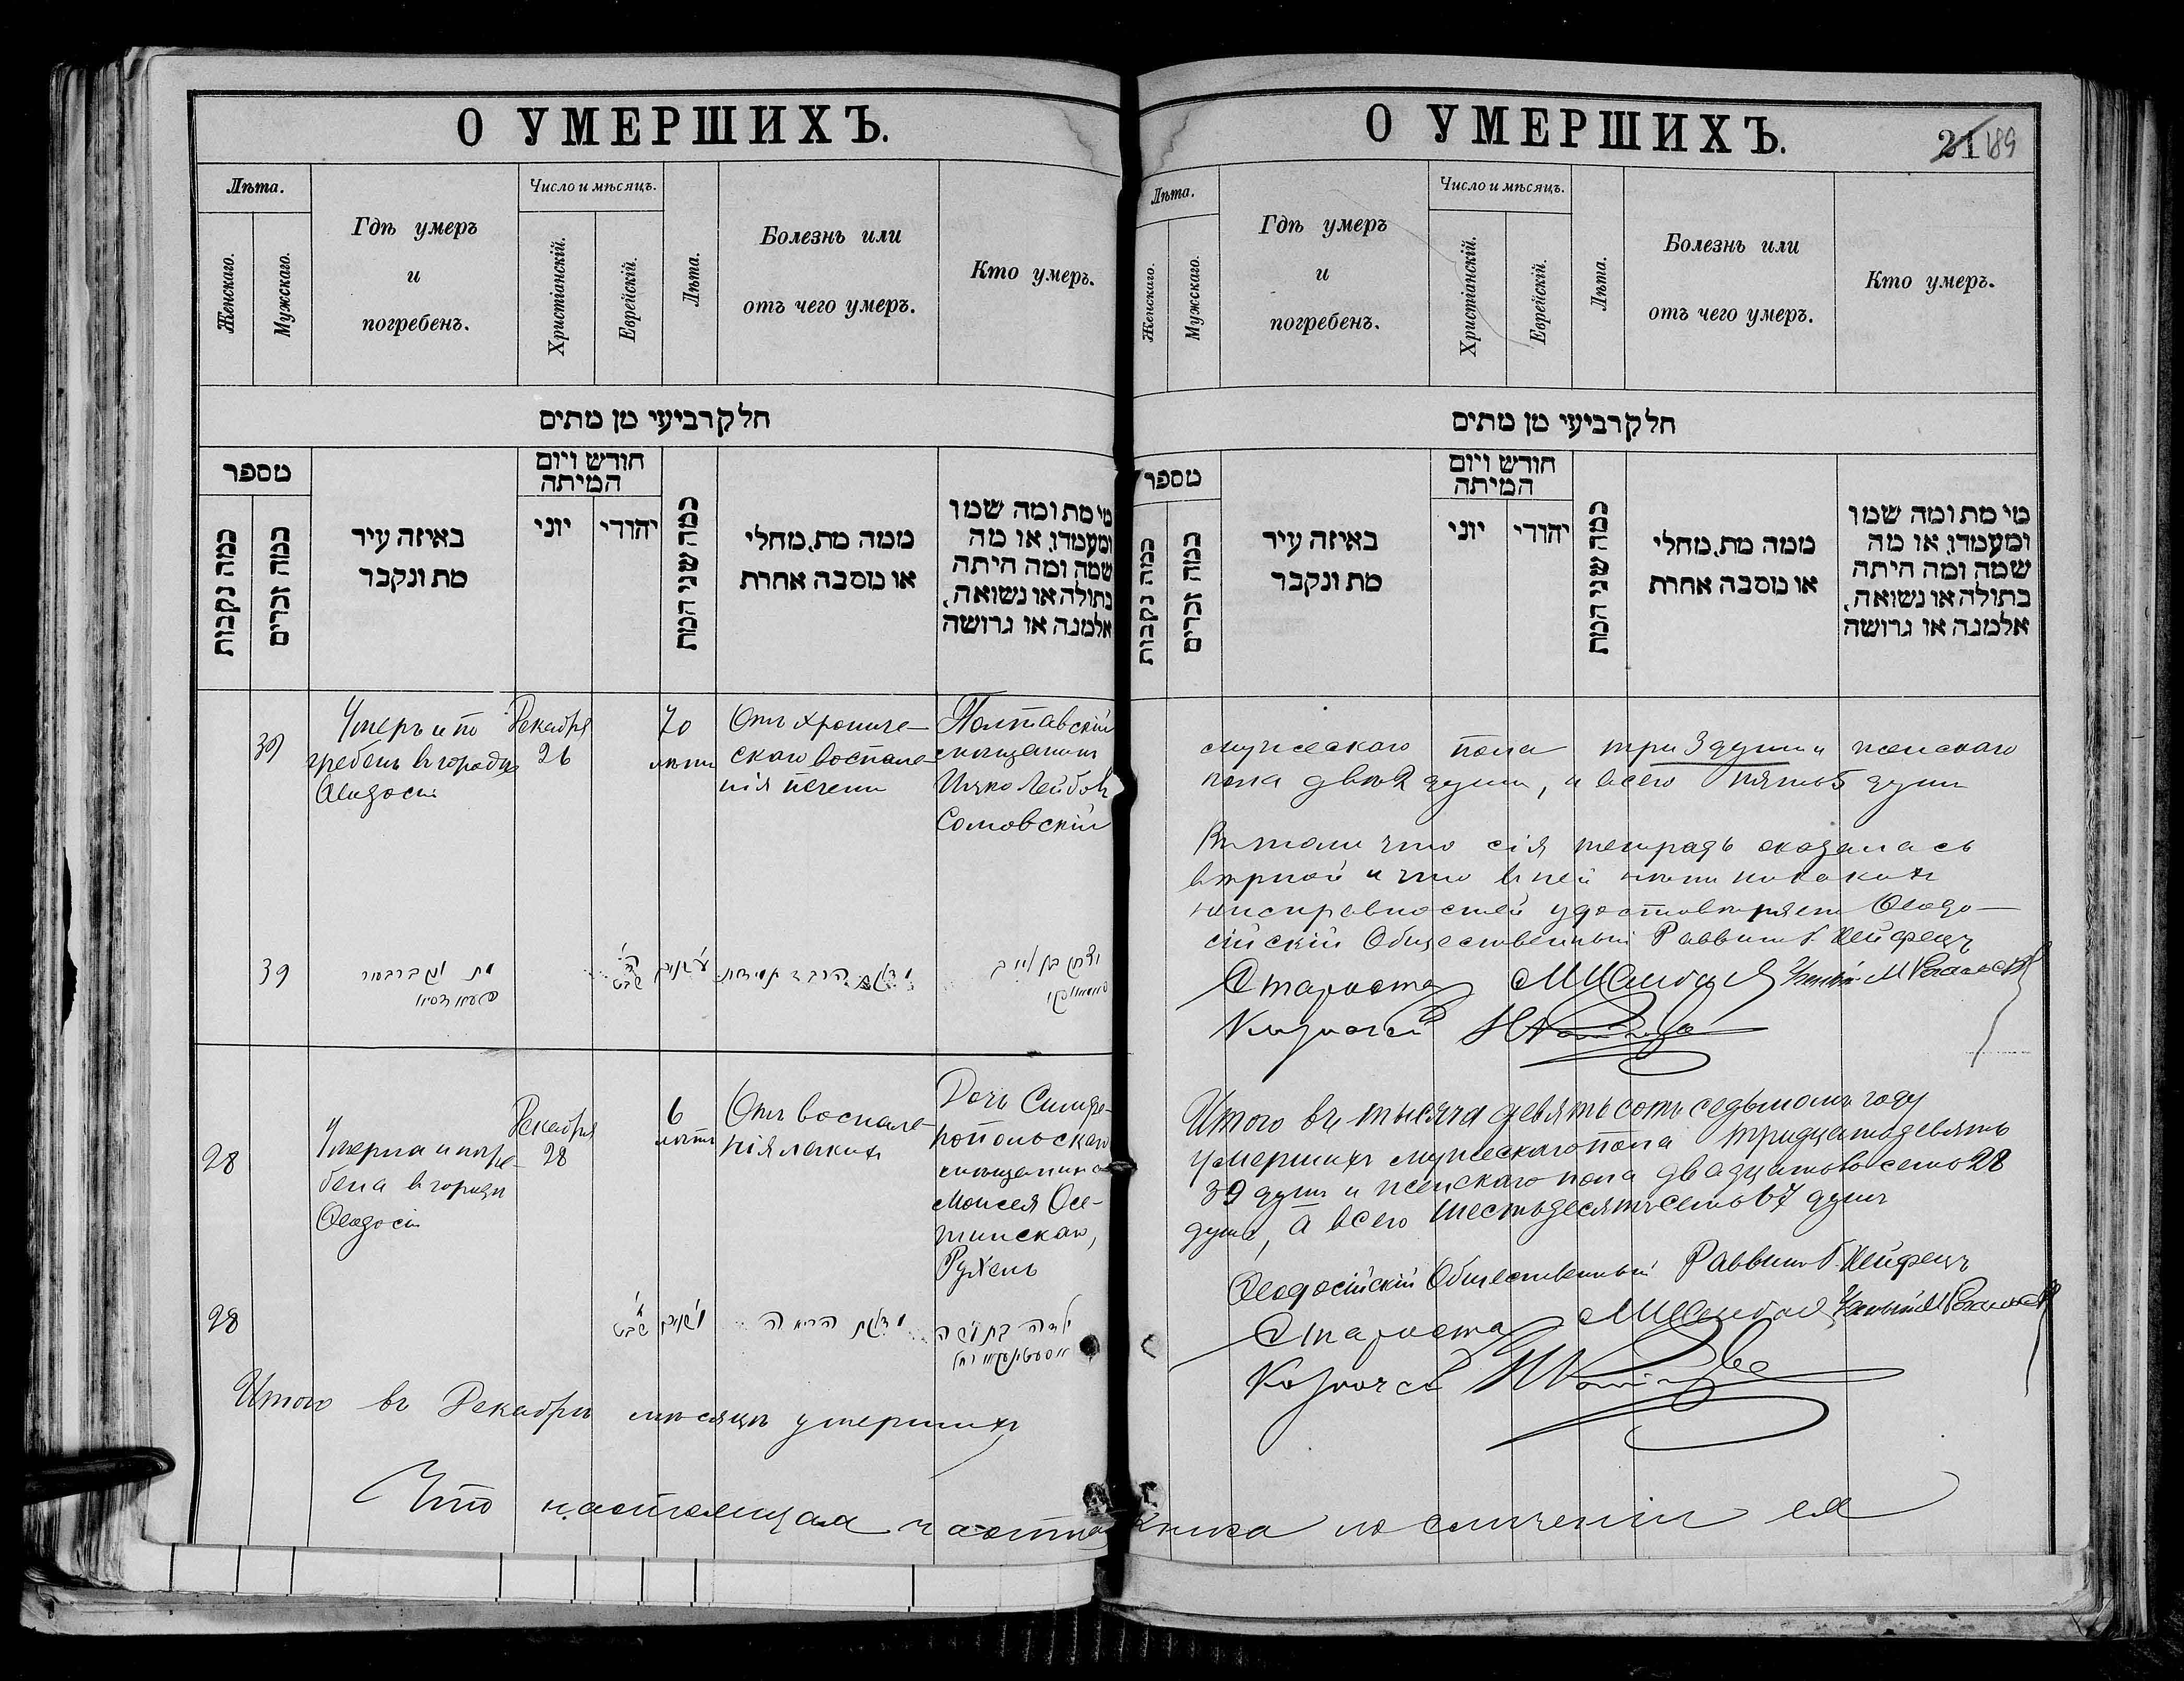 О УМЕРШИХЪ.
Лѣта.
Женскаго.
Мужскаго.
Гдѣ умеръ
и
погребенъ.
Число и мѣсяцъ.
Христіанскій.
Еврейскій.
Лѣта.
Болезнь или
отъ чего умеръ.
Кто умеръ.
חלק רביעי מן מתים
מספר
כמה נקבות
כמה זכרים
באיזה עיר
מת ונקבר
חודש ויום
המיתה
יוני
יהודי
כמה שני המת
ממה מת, מחלי
או מסבה אחרת
מי מת ומה שמו
ומעמדו, או מה
שמה ומה היתה
בתולה או נשואה,
אלמנה או גרושה
39
Умеръ и по
гребенъ въ городѣ
Ѳеодосіи
Декабря
26
70
лѣтъ
Отъ хрониче-
скаго воспале-
нія печени
Полтавскій
мѣщанинъ
Ицко Лейбовъ
Сомовскій
39
28
Умерла и погре-
бена в городѣ
Ѳеодосіи
Декабря
28
6
лѣтъ
Отъ воспале-
нія легкихъ
Дочь Симфе-
ропольскаго
мѣщанина
Моисея Осе-
тинскаго,
Рухель
28
Итого въ Декабрѣ мѣсяцѣ умершихъ
Что настоящая
О УМЕРШИХЪ.
21 189
Лѣта.
Женскаго.
Мужскаго.
Гдѣ умеръ
и
погребенъ.
Число и мѣсяцъ.
Христіанскій.
Еврейскій.
Лѣта.
Болезнь или
отъ чего умеръ.
Кто умеръ.
חלק רביעי מן מתים
מספר
כמה נקבות
כמה זכרים
באיזה עיר
מת ונקבר
חודש ויום
המיתה
יוני
יהודי
כמה שני המת
ממה מת, מחלי
או מסבה אחרת
מי מת ומה שמו
ומעמדו, או מה
שמה ומה היתה
בתולה או נשואה,
אלמנה או גרושה
мужескаго пола три 3 души и женскаго
пола двѣ 2 души, а всего пять 5 душъ
Въ томъ что сія тетрадь оказалась
вѣрной и что въ ней нѣтъ никакихъ
неисправностей удостовѣряетъ Ѳеодо-
сійскій Общественный Раввинъ Г. Хейфецъ
Староста
Казначей
Итого въ тысяча девятьсотъ седьмомъ году
умершихъ мужескаго пола тридцать девять
39 душъ и женскаго пола двадцать восемь 28
душъ, а всего шестьдесятъ семь 67 душъ
Ѳеодосійскій Общественный Раввинъ Г. Хейфецъ
Староста
Казначей
книга по сличеніи ея